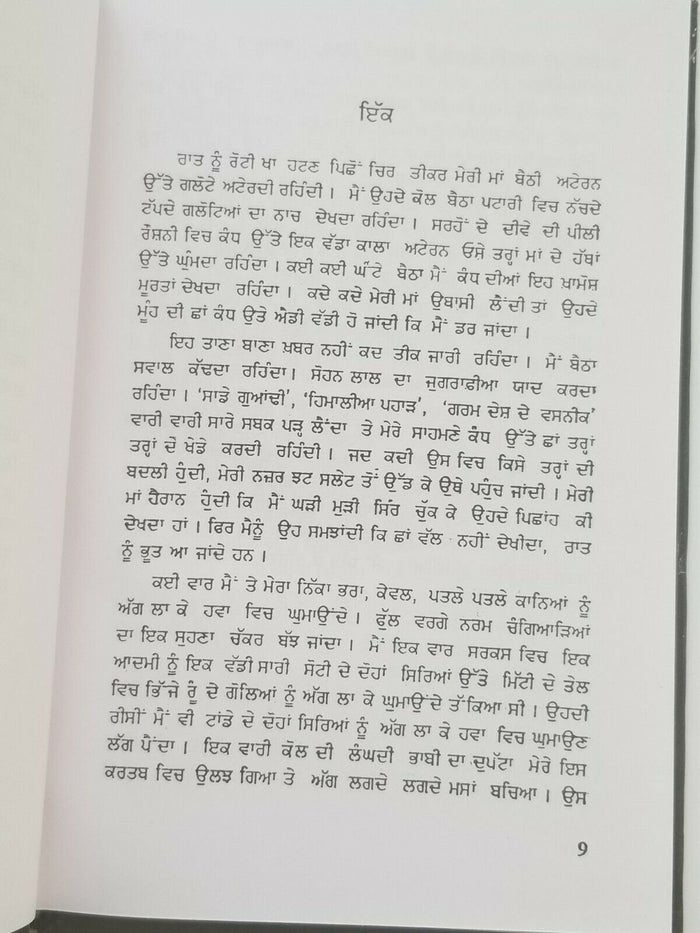 ਇੱਕ
ਰਾਤ ਨੂੰ ਰੋਟੀ ਖਾ ਹਟਣ ਪਿਛੋਂ ਚਿਰ ਤੀਕਰ ਮੇਰੀ ਮਾਂ ਬੈਠੀ ਅਟੇਰਨ
ਉੱਤੇ ਗਲੋਟੇ ਅਟੇਰਦੀ ਰਹਿੰਦੀ । ਮੈਂ ਉਹਦੇ ਕੋਲ ਬੈਠਾ ਪਟਾਰੀ ਵਿਚ ਨੱਚਦੇ
ਟੱਪਦੇ ਗਲੋਟਿਆਂ ਦਾ ਨਾਚ ਦੇਖਦਾ ਰਹਿੰਦਾ । ਸਰਹੋਂ ਦੇ ਦੀਵੇ ਦੀ ਪੀਲੀ
ਰੌਸ਼ਨੀ ਵਿਚ ਕੰਧ ਉੱਤੇ ਇਕ ਵੱਡਾ ਕਾਲਾ ਅਟੇਰਨ ਓਸੇ ਤਰ੍ਹਾਂ ਮਾਂ ਦੇ ਹੱਥਾਂ
ਉੱਤੇ ਘੁੰਮਦਾ ਰਹਿੰਦਾ । ਕਈ ਕਈ ਘੰਟੇ ਬੈਠਾ ਮੈਂ ਕੰਧ ਦੀਆਂ ਇਹ ਖ਼ਾਮੋਸ਼
ਮੂਰਤਾਂ ਦੇਖਦਾ ਰਹਿੰਦਾ । ਕਦੇ ਕਦੇ ਮੇਰੀ ਮਾਂ ਉਬਾਸੀ ਲੈਂਦੀ ਤਾਂ ਉਹਦੇ
ਮੂੰਹ ਦੀ ਛਾਂ ਕੰਧ ਉਤੇ ਐਡੀ ਵੱਡੀ ਹੋ ਜਾਂਦੀ ਕਿ ਮੈਂ ਡਰ ਜਾਂਦਾ ।
ਇਹ ਤਾਣਾ ਬਾਣਾ ਖ਼ਬਰ ਨਹੀਂ ਕਦ ਤੀਕ ਜਾਰੀ ਰਹਿੰਦਾ । ਮੈਂ ਬੈਠਾ
ਸਵਾਲ ਕੱਢਦਾ ਰਹਿੰਦਾ। ਸੋਹਨ ਲਾਲ ਦਾ ਜੁਗਰਾਫੀਆ ਯਾਦ ਕਰਦਾ
ਰਹਿੰਦਾ । ‘ਸਾਡੇ ਗੁਆਂਢੀ’, ‘ਹਿਮਾਲੀਆ ਪਹਾੜ’, ‘ਗਰਮ ਦੇਸ਼ ਦੇ ਵਸਨੀਕ’
ਵਾਰੀ ਵਾਰੀ ਸਾਰੇ ਸਬਕ ਪੜ੍ਹ ਲੈਂਦਾ ਤੇ ਮੇਰੇ ਸਾਹਮਣੇ ਕੰਧ ਉੱਤੇ ਛਾਂ ਤਰ੍ਹਾਂ
ਤਰ੍ਹਾਂ ਦੇ ਖੇਡੇ ਕਰਦੀ ਰਹਿੰਦੀ । ਜਦ ਕਦੀ ਉਸ ਵਿਚ ਕਿਸੇ ਤਰ੍ਹਾਂ ਦੀ
ਬਦਲੀ ਹੁੰਦੀ, ਮੇਰੀ ਨਜ਼ਰ ਝਟ ਸਲੇਟ ਤੋਂ ਉੱਡ ਕੇ ਉਥੇ ਪਹੁੰਚ ਜਾਂਦੀ । ਮੇਰੀ
ਮਾਂ ਹੈਰਾਨ ਹੁੰਦੀ ਕਿ ਮੈਂ ਘੜੀ ਮੁੜੀ ਸਿਰ ਚੁੱਕ ਕੇ ਉਹਦੇ ਪਿਛਾਂਹ ਕੀ
ਦੇਖਦਾ ਹਾਂ । ਫਿਰ ਮੈਨੂੰ ਉਹ ਸਮਝਾਂਦੀ ਕਿ ਛਾਂ ਵੱਲ ਨਹੀਂ ਦੇਖੀਦਾ, ਰਾਤ
ਨੂੰ ਭੂਤ ਆ ਜਾਂਦੇ ਹਨ ।
ਕਈ ਵਾਰ ਮੈਂ ਤੇ ਮੇਰਾ ਨਿੱਕਾ ਭਰਾ, ਕੇਵਲ, ਪਤਲੇ ਪਤਲੇ ਕਾਨਿਆਂ ਨੂੰ
ਅੱਗ ਲਾ ਕੇ ਹਵਾ ਵਿਚ ਘੁਮਾਉਂਦੇ । ਫੁੱਲ ਵਰਗੇ ਨਰਮ ਚੰਗਿਆੜਿਆਂ
ਦਾ ਇਕ ਸੁਹਣਾ ਚੱਕਰ ਬੱਝ ਜਾਂਦਾ । ਮੈਂ ਇਕ ਵਾਰ ਸਰਕਸ ਵਿਚ ਇਕ
ਆਦਮੀ ਨੂੰ ਇਕ ਵੱਡੀ ਸਾਰੀ ਸੋਟੀ ਦੇ ਦੋਹਾਂ ਸਿਰਿਆਂ ਉੱਤੇ ਮਿੱਟੀ ਦੇ ਤੇਲ
ਵਿਚ ਭਿੱਜੇ ਰੂੰ ਦੇ ਗੋਲਿਆਂ ਨੂੰ ਅੱਗ ਲਾ ਕੇ ਘੁਮਾਉਂਦੇ ਤੱਕਿਆ ਸੀ । ਉਹਦੀ
ਰੀਸੀਂ ਮੈਂ ਵੀ ਟਾਂਡੇ ਦੇ ਦੋਹਾਂ ਸਿਰਿਆਂ ਨੂੰ ਅੱਗ ਲਾ ਕੇ ਹਵਾ ਵਿਚ ਘੁਮਾਉਣ
ਲੱਗ ਪੈਂਦਾ । ਇਕ ਵਾਰੀ ਕੋਲ ਦੀ ਲੰਘਦੀ ਭਾਬੀ ਦਾ ਦੁਪੱਟਾ ਮੇਰੇ ਇਸ
ਕਰਤਬ ਵਿਚ ਉਲਝ ਗਿਆ ਤੇ ਅੱਗ ਲਗਦੇ ਲਗਦੇ ਮਸਾਂ ਬਚਿਆ । ਉਸ
9